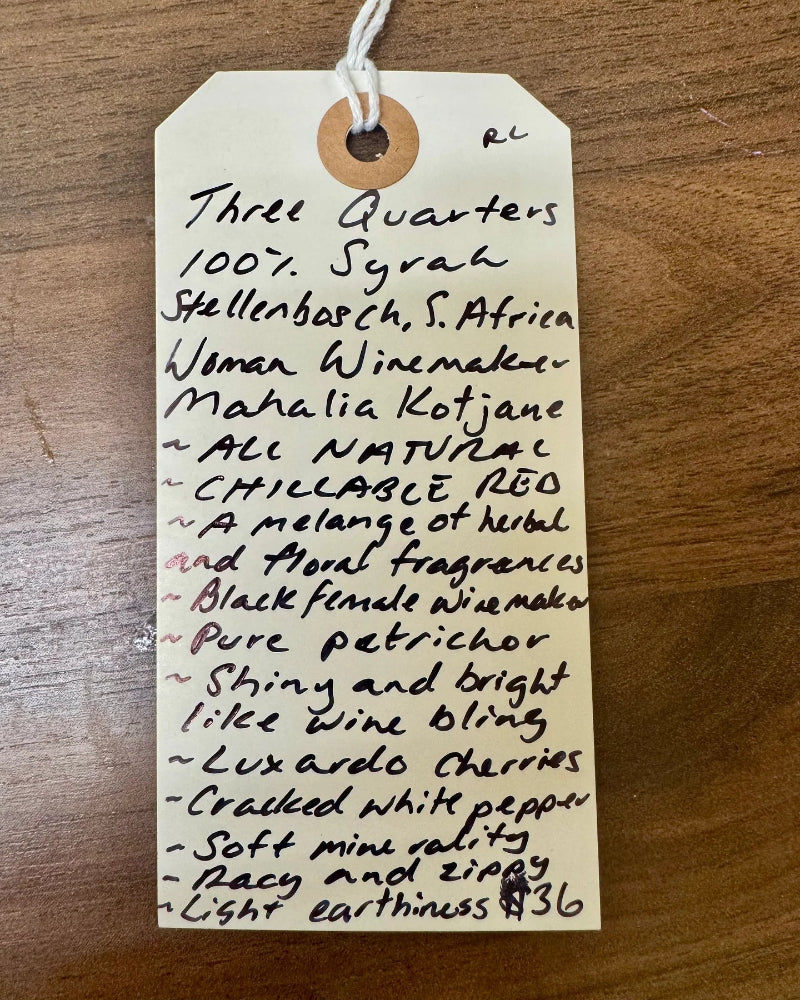 RL
Three Quarters
100% Syrah
Stellenbosch, S. Africa
Woman Winemaker
Mahalia Kotjane
~ ALL NATURAL
~ CHILLABLE RED
~ A melange of herbal
and floral fragrances
~ Black female winemaker
~ Pure petrichor
~ Shiny and bright
like wine bling
~ Luxardo cherries
~ Cracked white pepper
~ Soft minerality
~ Racy and zippy
~ Light earthiness $36